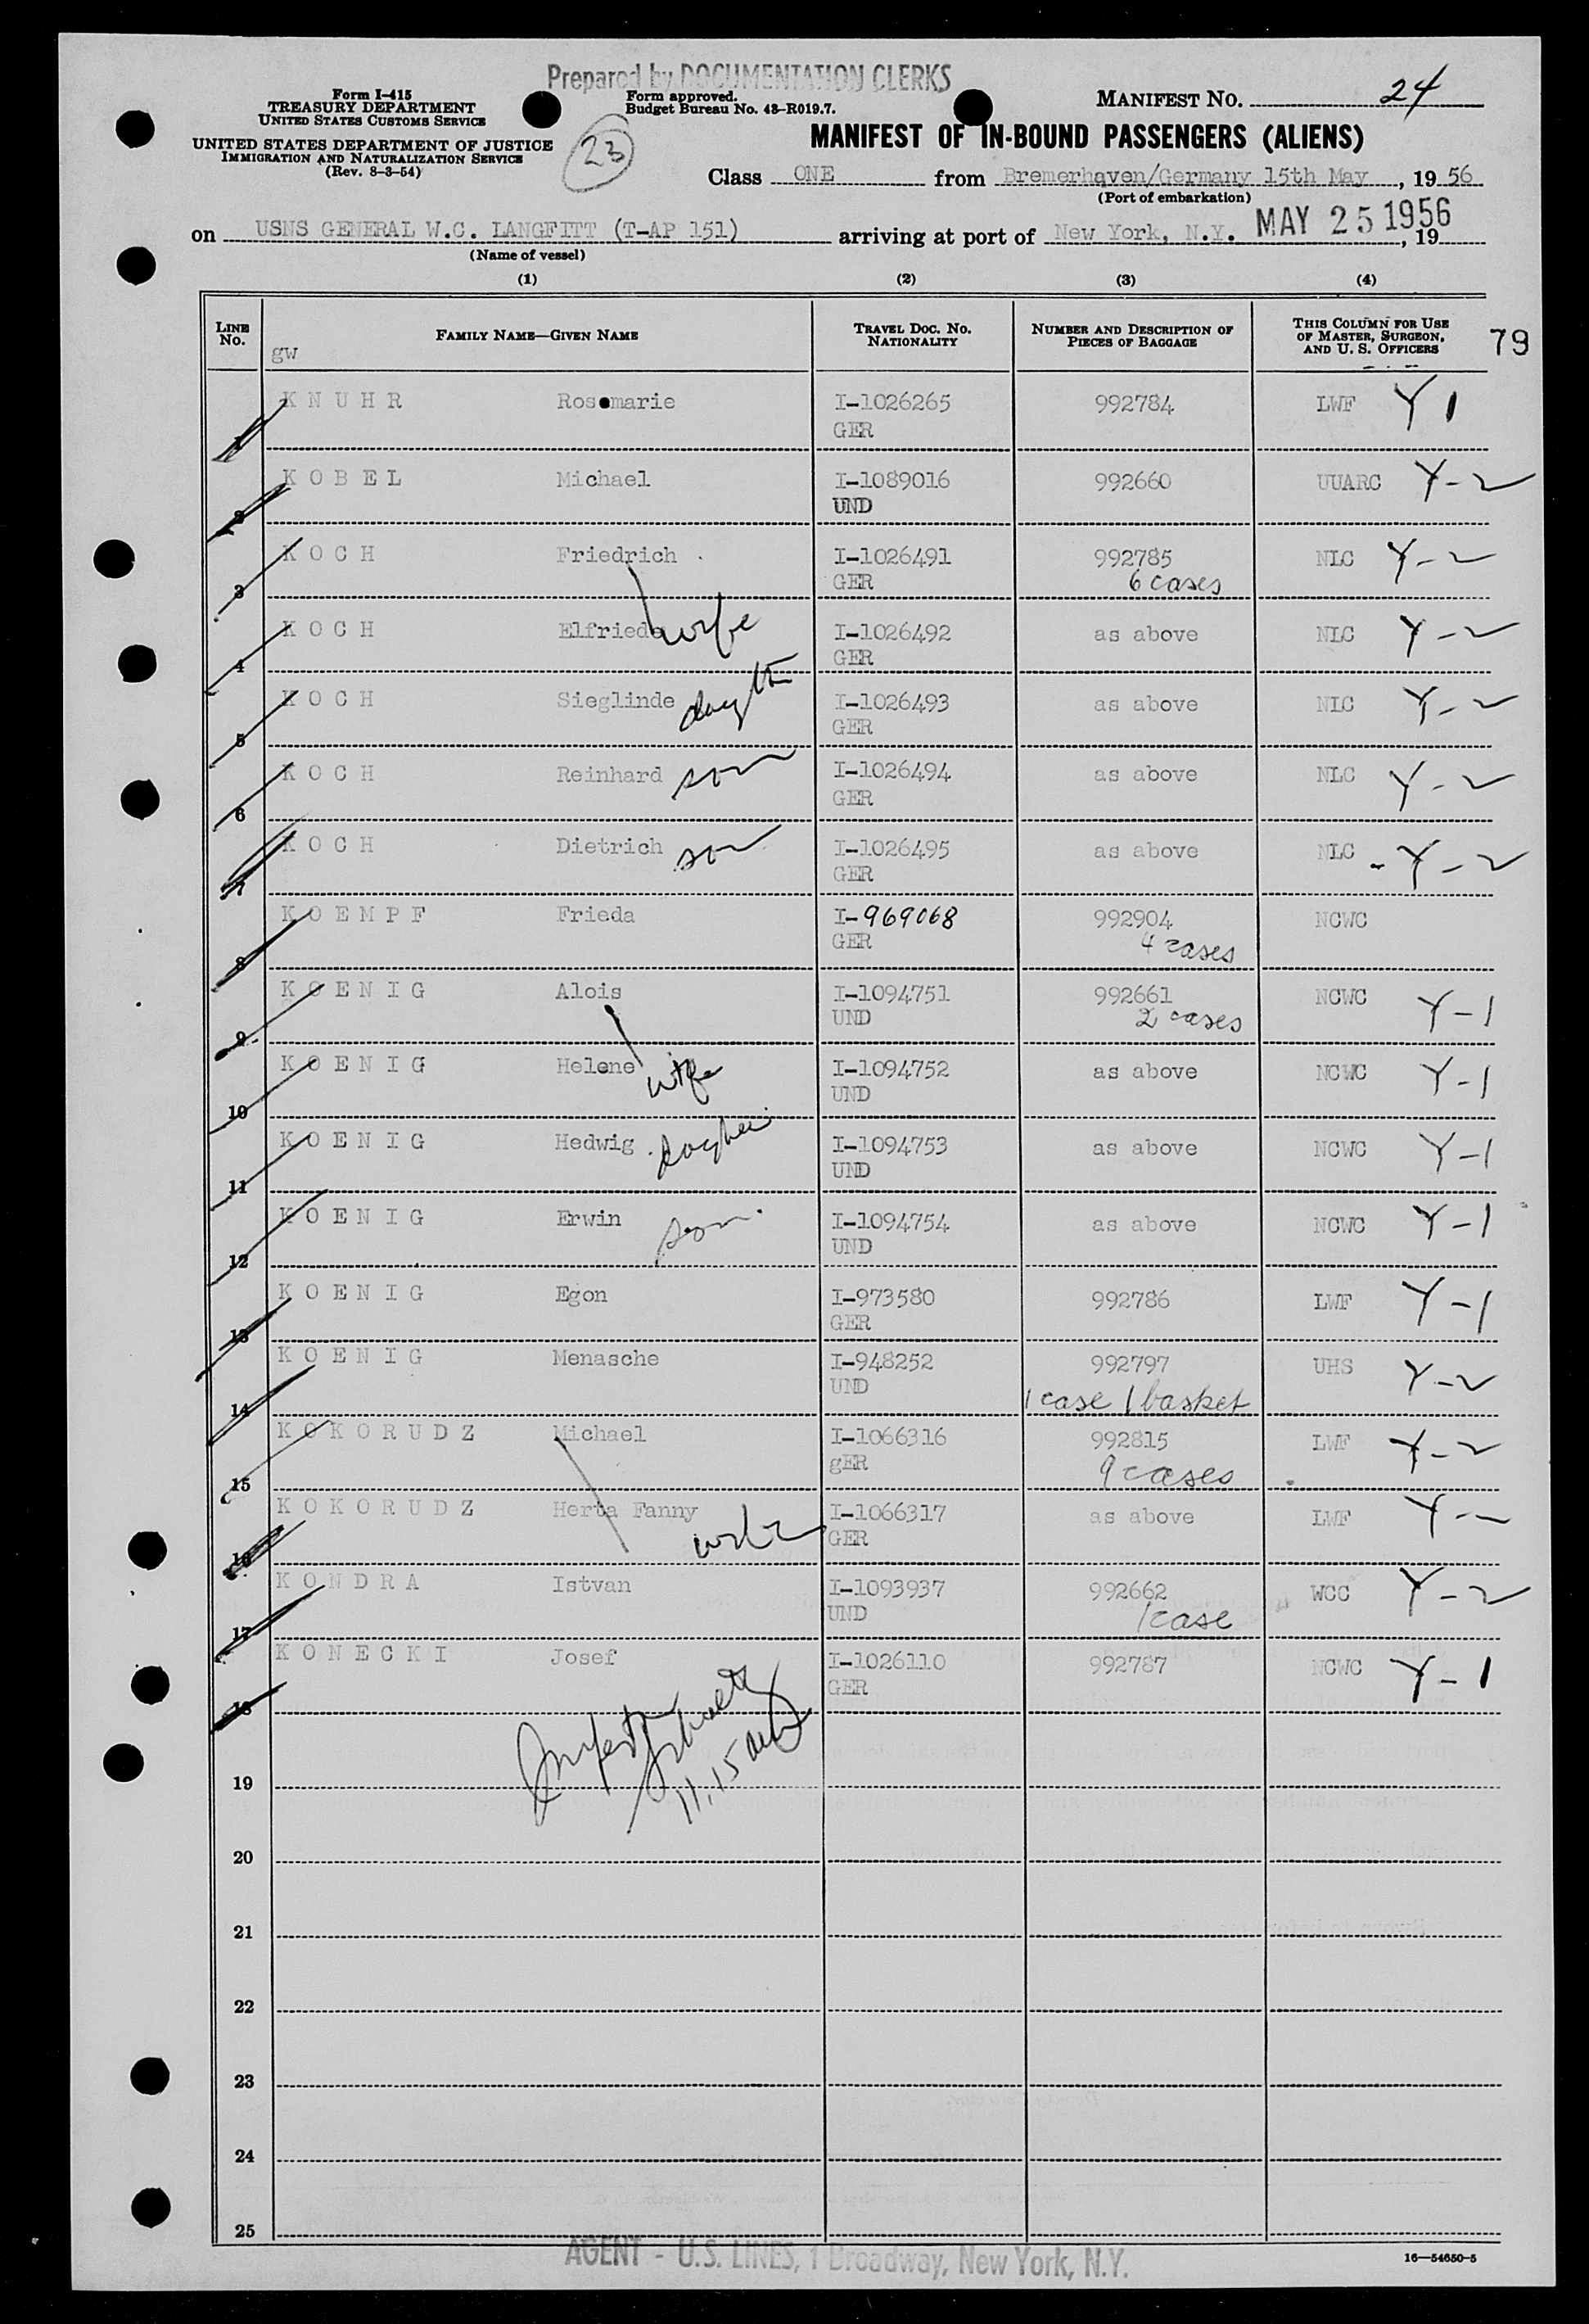 Prepared by DOCUMENTATION CLERKS
Form I-415
TREASURY DEPARTMENT
UNITED STATES CUSTOMS SERVICE
UNITED STATES DEPARTMENT OF JUSTICE
IMMIGRATION AND NATURALIZATION SERVICE
(Rev. 8-3-54)
Form approved.
Budget Bureau No. 43-R019.7.
23
MANIFEST NO. 24
MANIFEST OF IN-BOUND PASSENGERS (ALIENS)
Class ONE from Bremerhaven/Germany 15th May, 19 56
(Port of embarkation)
on USNS GENERAL W.C. LANGFITT (T-AP 151) arriving at port of New York, N.Y. MAY 25 1956, 19
(Name of vessel)
(1) (2) (3) (4)
LINE NO. FAMILY NAME—GIVEN NAME TRAVEL DOC. NO. NATIONALITY NUMBER AND DESCRIPTION OF PIECES OF BAGGAGE THIS COLUMN FOR USE OF MASTER, SURGEON, AND U. S. OFFICERS 79
gw
1 KNUHR Rosemarie I-1026265 992784 LWF Y 1
GER
2 KOBEL Michael I-1089016 992660 UUARC Y-2
UND
3 KOCH Friedrich I-1026491 992785 NLC Y-2
GER 6 cases
4 KOCH Elfriede wife I-1026492 as above NLC Y-2
GER
5 KOCH Sieglinde I-1026493 as above NLC Y-2
GER
6 KOCH Reinhard son I-1026494 as above NLC Y-2
GER
7 KOCH Dietrich son I-1026495 as above NLC -Y-2
GER
8 KOEMPF Frieda I-969068 992904 NCWC
GER 4 cases
9 KOENIG Alois I-1094751 992661 NCWC Y-1
UND 2 cases
10 KOENIG Helene wife I-1094752 as above NCWC Y-1
UND
11 KOENIG Hedwig I-1094753 as above NCWC Y-1
UND
12 KOENIG Erwin son I-1094754 as above NCWC Y-1
UND
13 KOENIG Egon I-973580 992786 LWF Y-1
GER
14 KOENIG Menasche I-948252 992797 UHS Y-2
UND 1 case 1 basket
15 KOKORUDZ Michael I-1066316 992815 LWF Y-2
gER 9 cases
16 KOKORUDZ Herta Fanny wife I-1066317 as above LWF Y--
GER
17 KONDRA Istvan I-1093937 992662 WCC Y-2
UND 1 case
18 KONECKI Josef I-1026110 992787 NCWC Y-1
GER
11,15 AM
19
20
21
22
23
24
25
AGENT - U.S. LINES, 1 Broadway, New York, N.Y.
16—54650-5